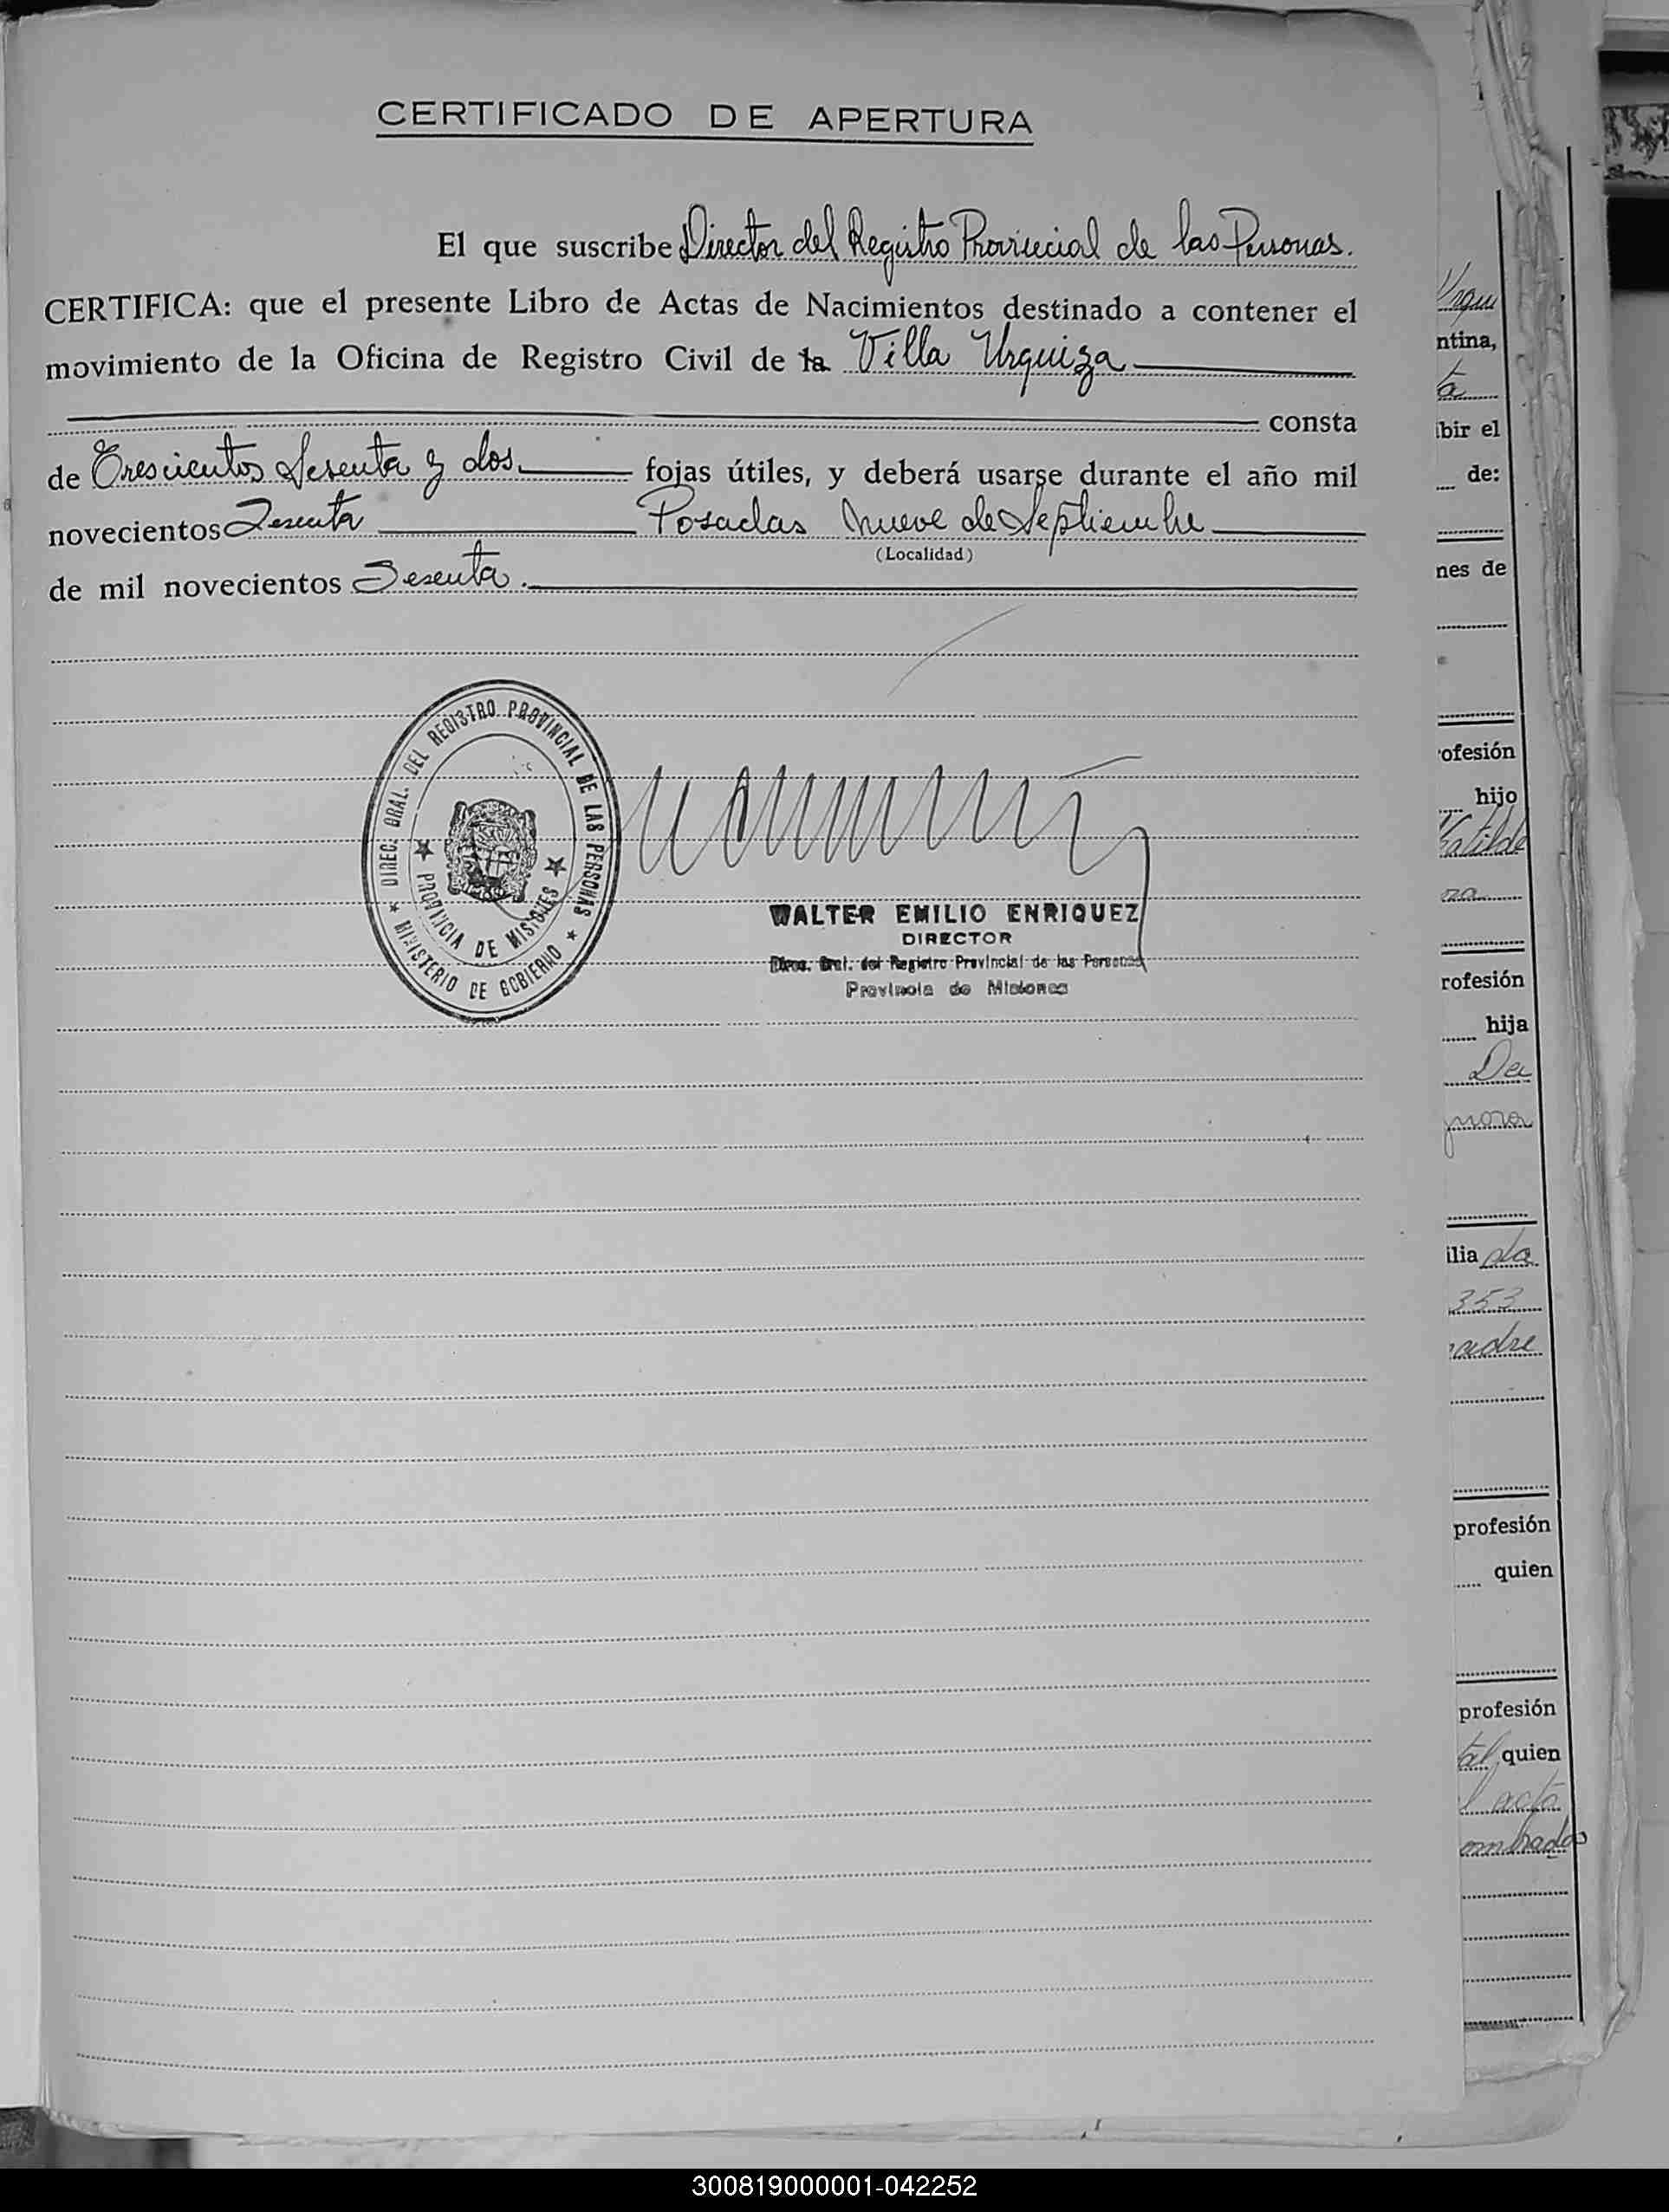 CERTIFICADO DE APERTURA
El que suscribe Director del Registro Provincial de las Personas.
CERTIFICA: que el presente Libro de Actas de Nacimientos destinado a contener el
movimiento de la Oficina de Registro Civil de la Villa Urquiza
consta
de Trescientos Sesenta y dos fojas útiles, y deberá usarse durante el año mil
novecientos Sesenta Posadas Nueve de Septiembre
(Localidad)
de mil novecientos Sesenta.
DIREC. GRAL. DEL REGISTRO PROVINCIAL DE LAS PERSONAS
PROVINCIA DE MISIONES
MINISTERIO DE GOBIERNO
WALTER EMILIO ENRIQUEZ
DIRECTOR
Direc. Gral. del Registro Provincial de las Personas
Provincia de Misiones
Urqui
ntina,
ta
ibir el
de:
nes de
ofesión
hijo
Matilde
za
rofesión
hija
De
ilia da
353
adre
profesión
quien
profesión
tal quien
l acto
ombrados
300819000001-042252